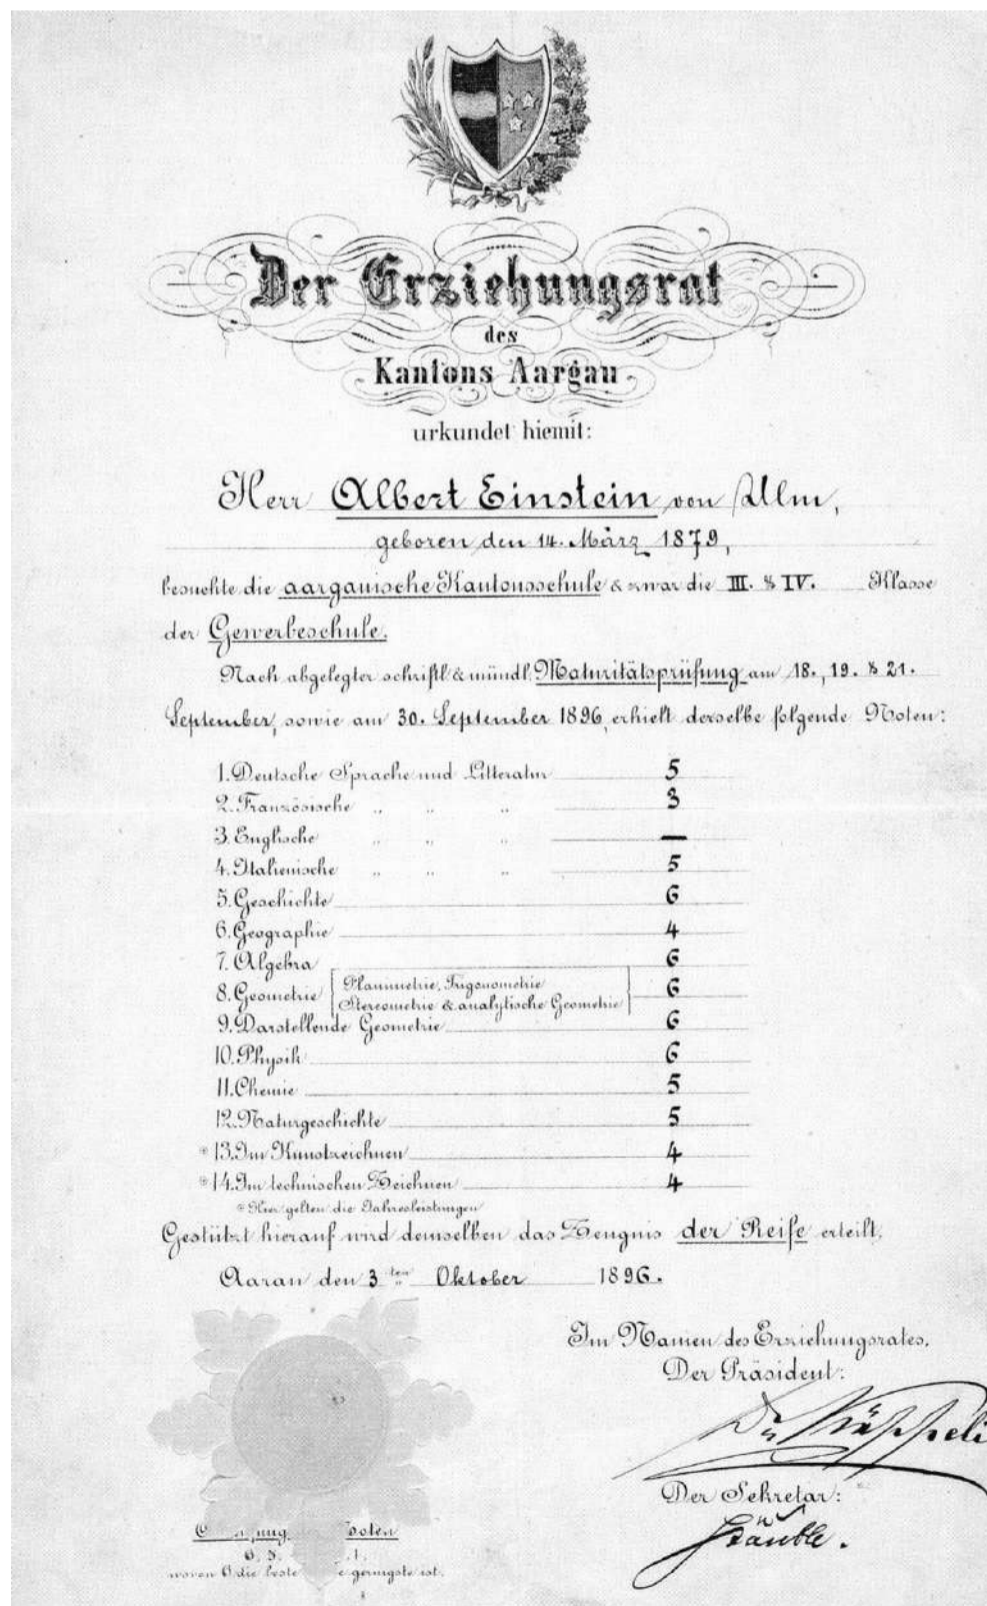 Der Erziehungsrat
des
Kantons Aargau
urkundet hiemit:
Herr Albert Einstein von Ulm,
geboren den 14. März 1879,
besuchte die aargauische Kantonsschule & zwar die III. & IV. Klasse
der Gewerbeschule.
Nach abgelegter schriftl. & mündl. Maturitätsprüfung am 18., 19. & 21.
September, sowie am 30. September 1896, erhielt derselbe folgende Noten:
1. Deutsche Sprache und Litteratur 5
2. Französische " " " 3
3. Englische " " " —
4. Italienische " " " 5
5. Geschichte 6
6. Geographie 4
7. Algebra 6
8. Geometrie Planimetrie, Trigonometrie 6
Stereometrie & analytische Geometrie
9. Darstellende Geometrie 6
10. Physik 6
11. Chemie 5
12. Naturgeschichte 5
* 13. Im Kunstzeichnen 4
* 14. Im technischen Zeichnen 4
* Hier gelten die Jahresleistungen
Gestützt hierauf wird demselben das Zeugnis der Reife erteilt.
Aarau den 3ten Oktober 1896.
Im Namen des Erziehungsrates,
Der Präsident:
Dr Käppeli
Der Sekretär:
Stäuble.
Noten
6. 5. 1.
wovon 6 die beste geringste ist.